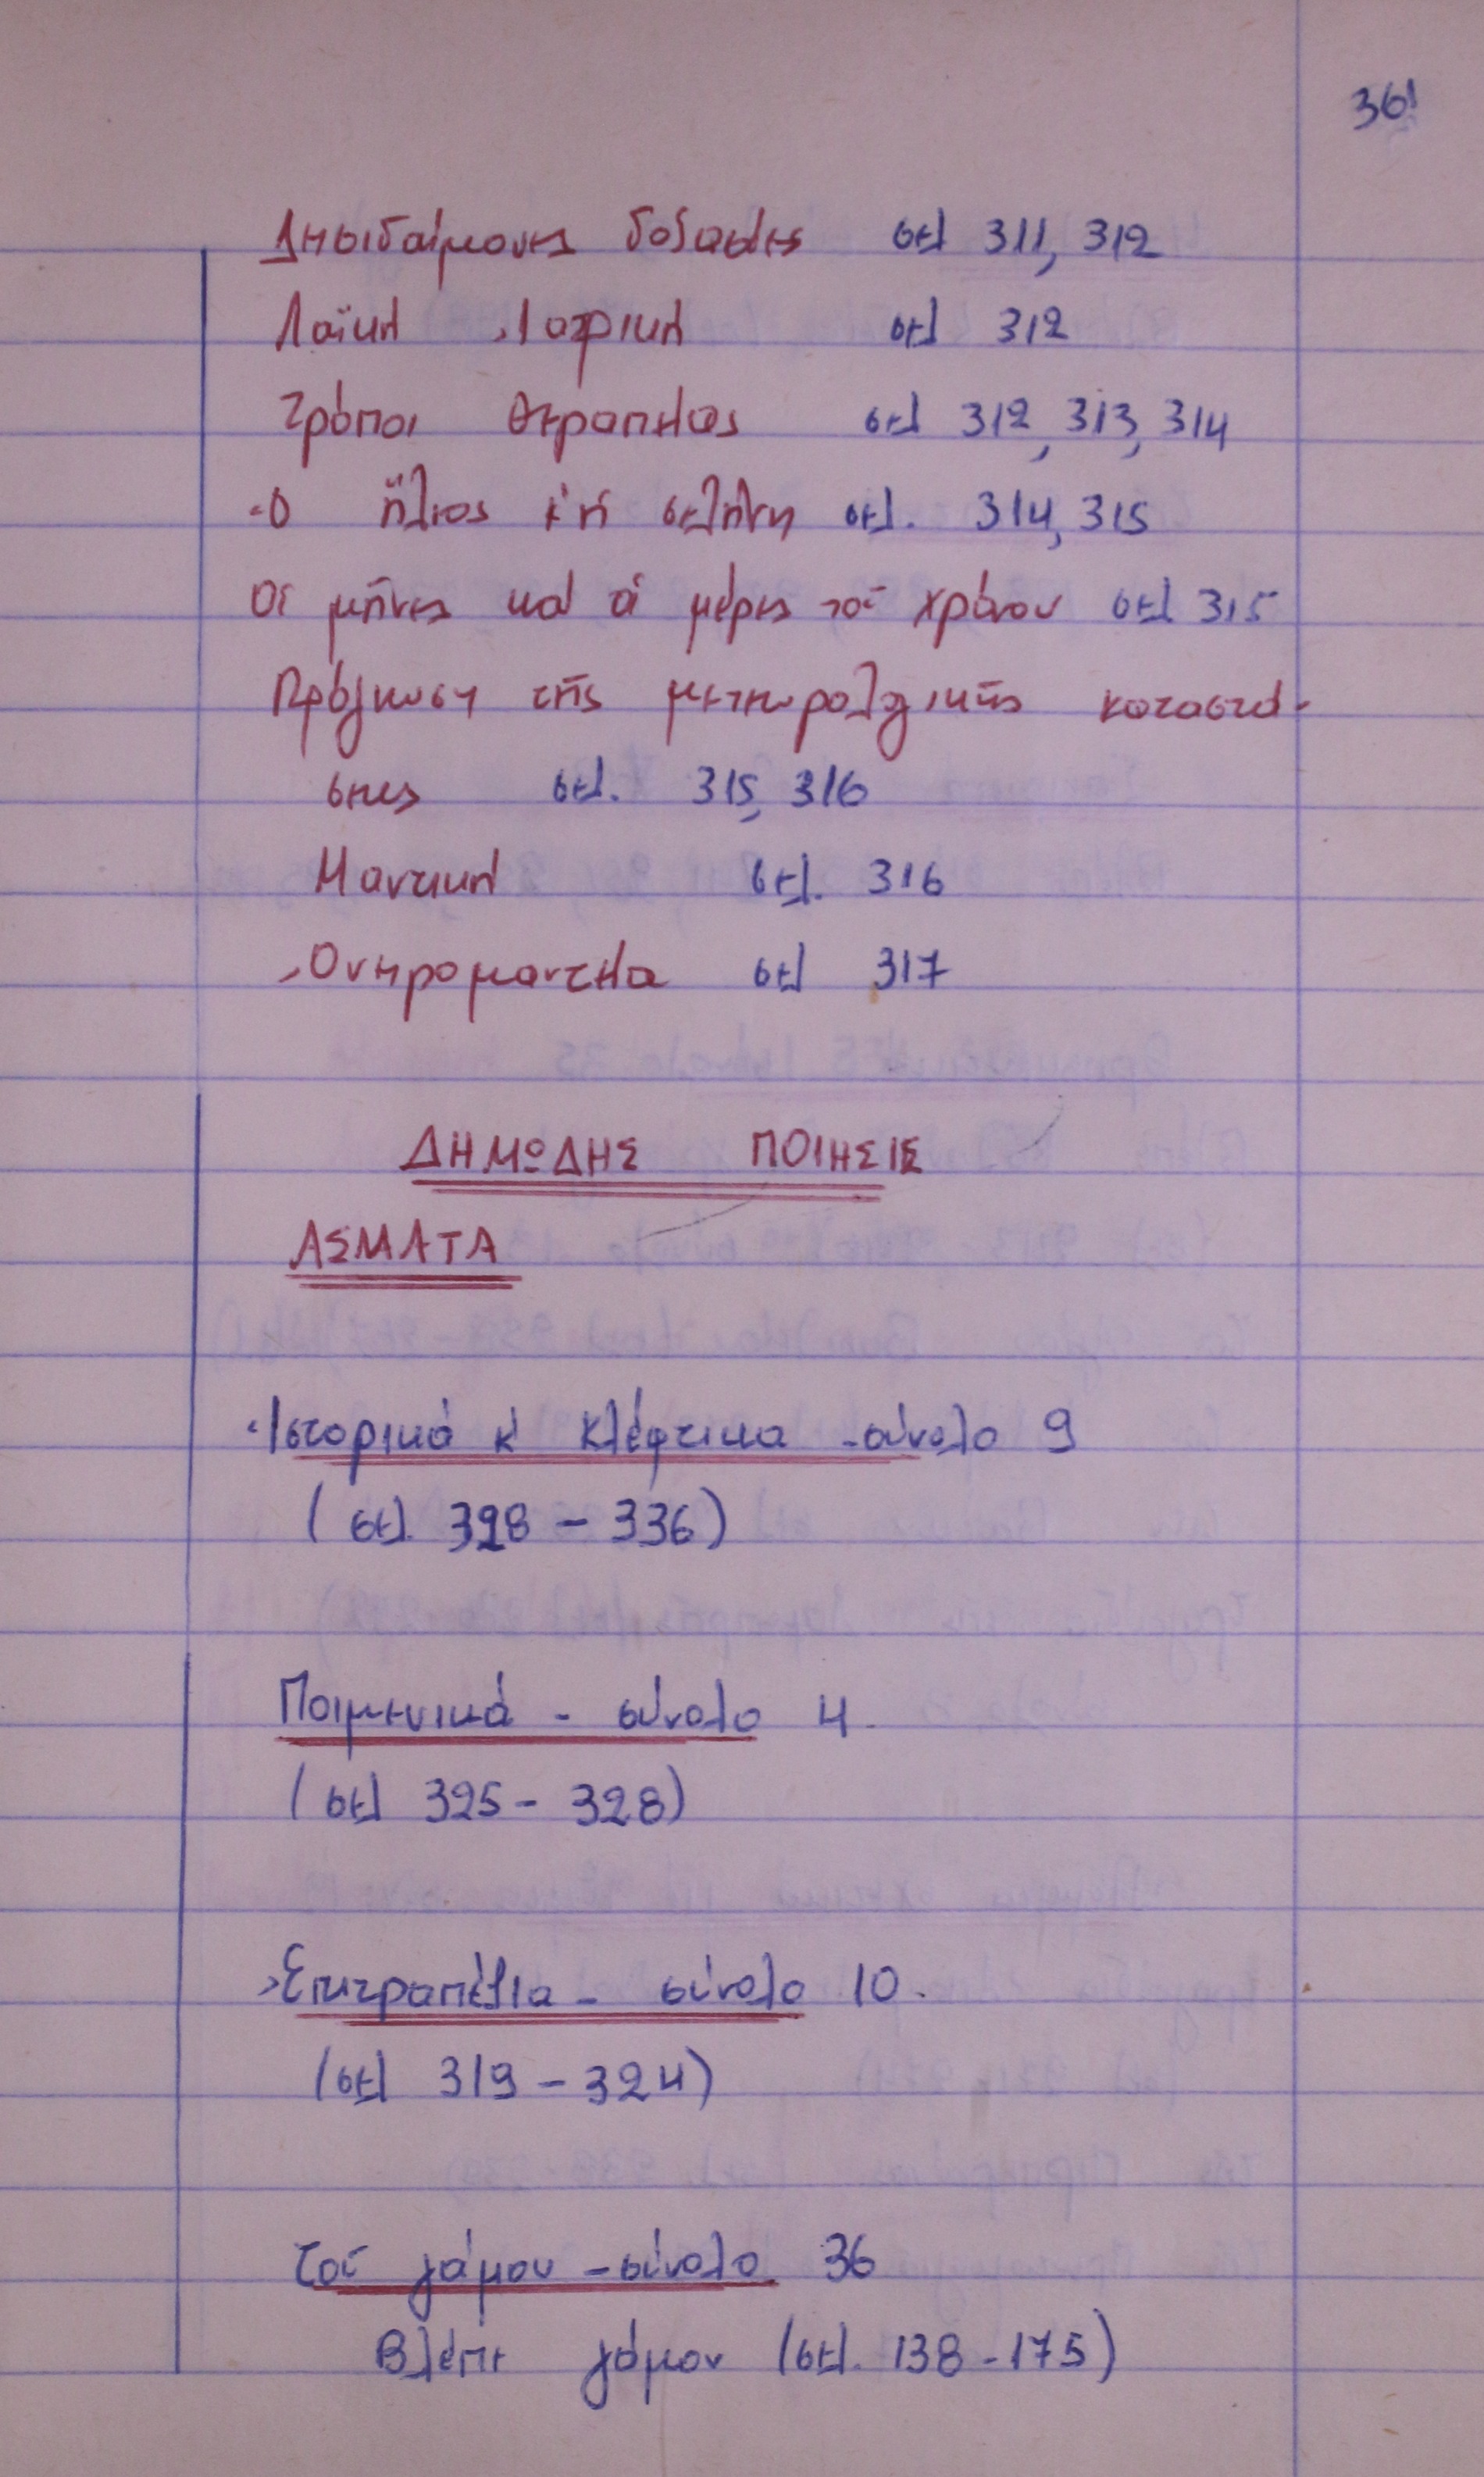 361
Δεισιδαίμονες δοξασίες σελ 311, 312
Λαϊκή Ἰατρική σελ 312
Τρόποι θεραπείας σελ 312, 313, 314
Ὁ ἥλιος κ' ἡ σελήνη σελ. 314, 315
Οἱ μῆνες καί οἱ μέρες τοῦ χρόνου σελ 315
Πρόγνωση τῆς μετεωρολογικῆς καταστά-
σεως σελ. 315, 316
Μαντική σελ. 316
Ὀνειρομαντεία σελ 317
ΔΗΜΩΔΗΣ ΠΟΙΗΣΙΣ
ΑΣΜΑΤΑ
Ἱστορικά κ' κλέφτικα - σύνολο 9
(σελ. 328 - 336)
Ποιμενικά - σύνολο 4
(σελ 325 - 328)
Ἐπιτραπέζια - σύνολο 10.
(σελ 319 - 324)
Τοῦ γάμου - σύνολο 36
Βλέπε γάμον (σελ. 138 - 175)